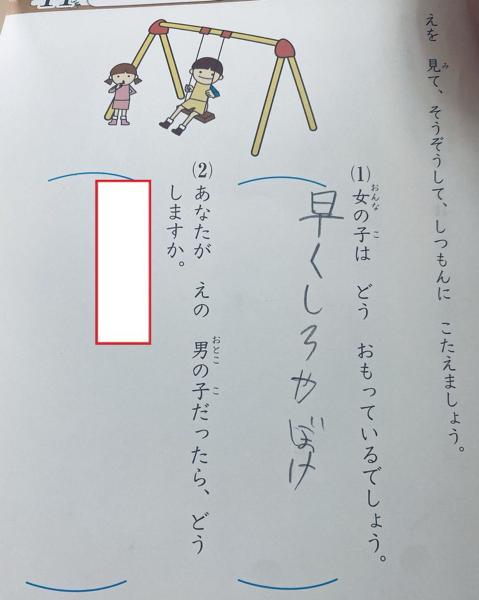 えを 見て、そうぞうして、しつもんに こたえましょう。
み
(1)女の子は どう おもっているでしょう。
おんな こ
早くしろやぼけ
(2)あなたが えの 男の子だったら、どう
おとこ こ
しますか。